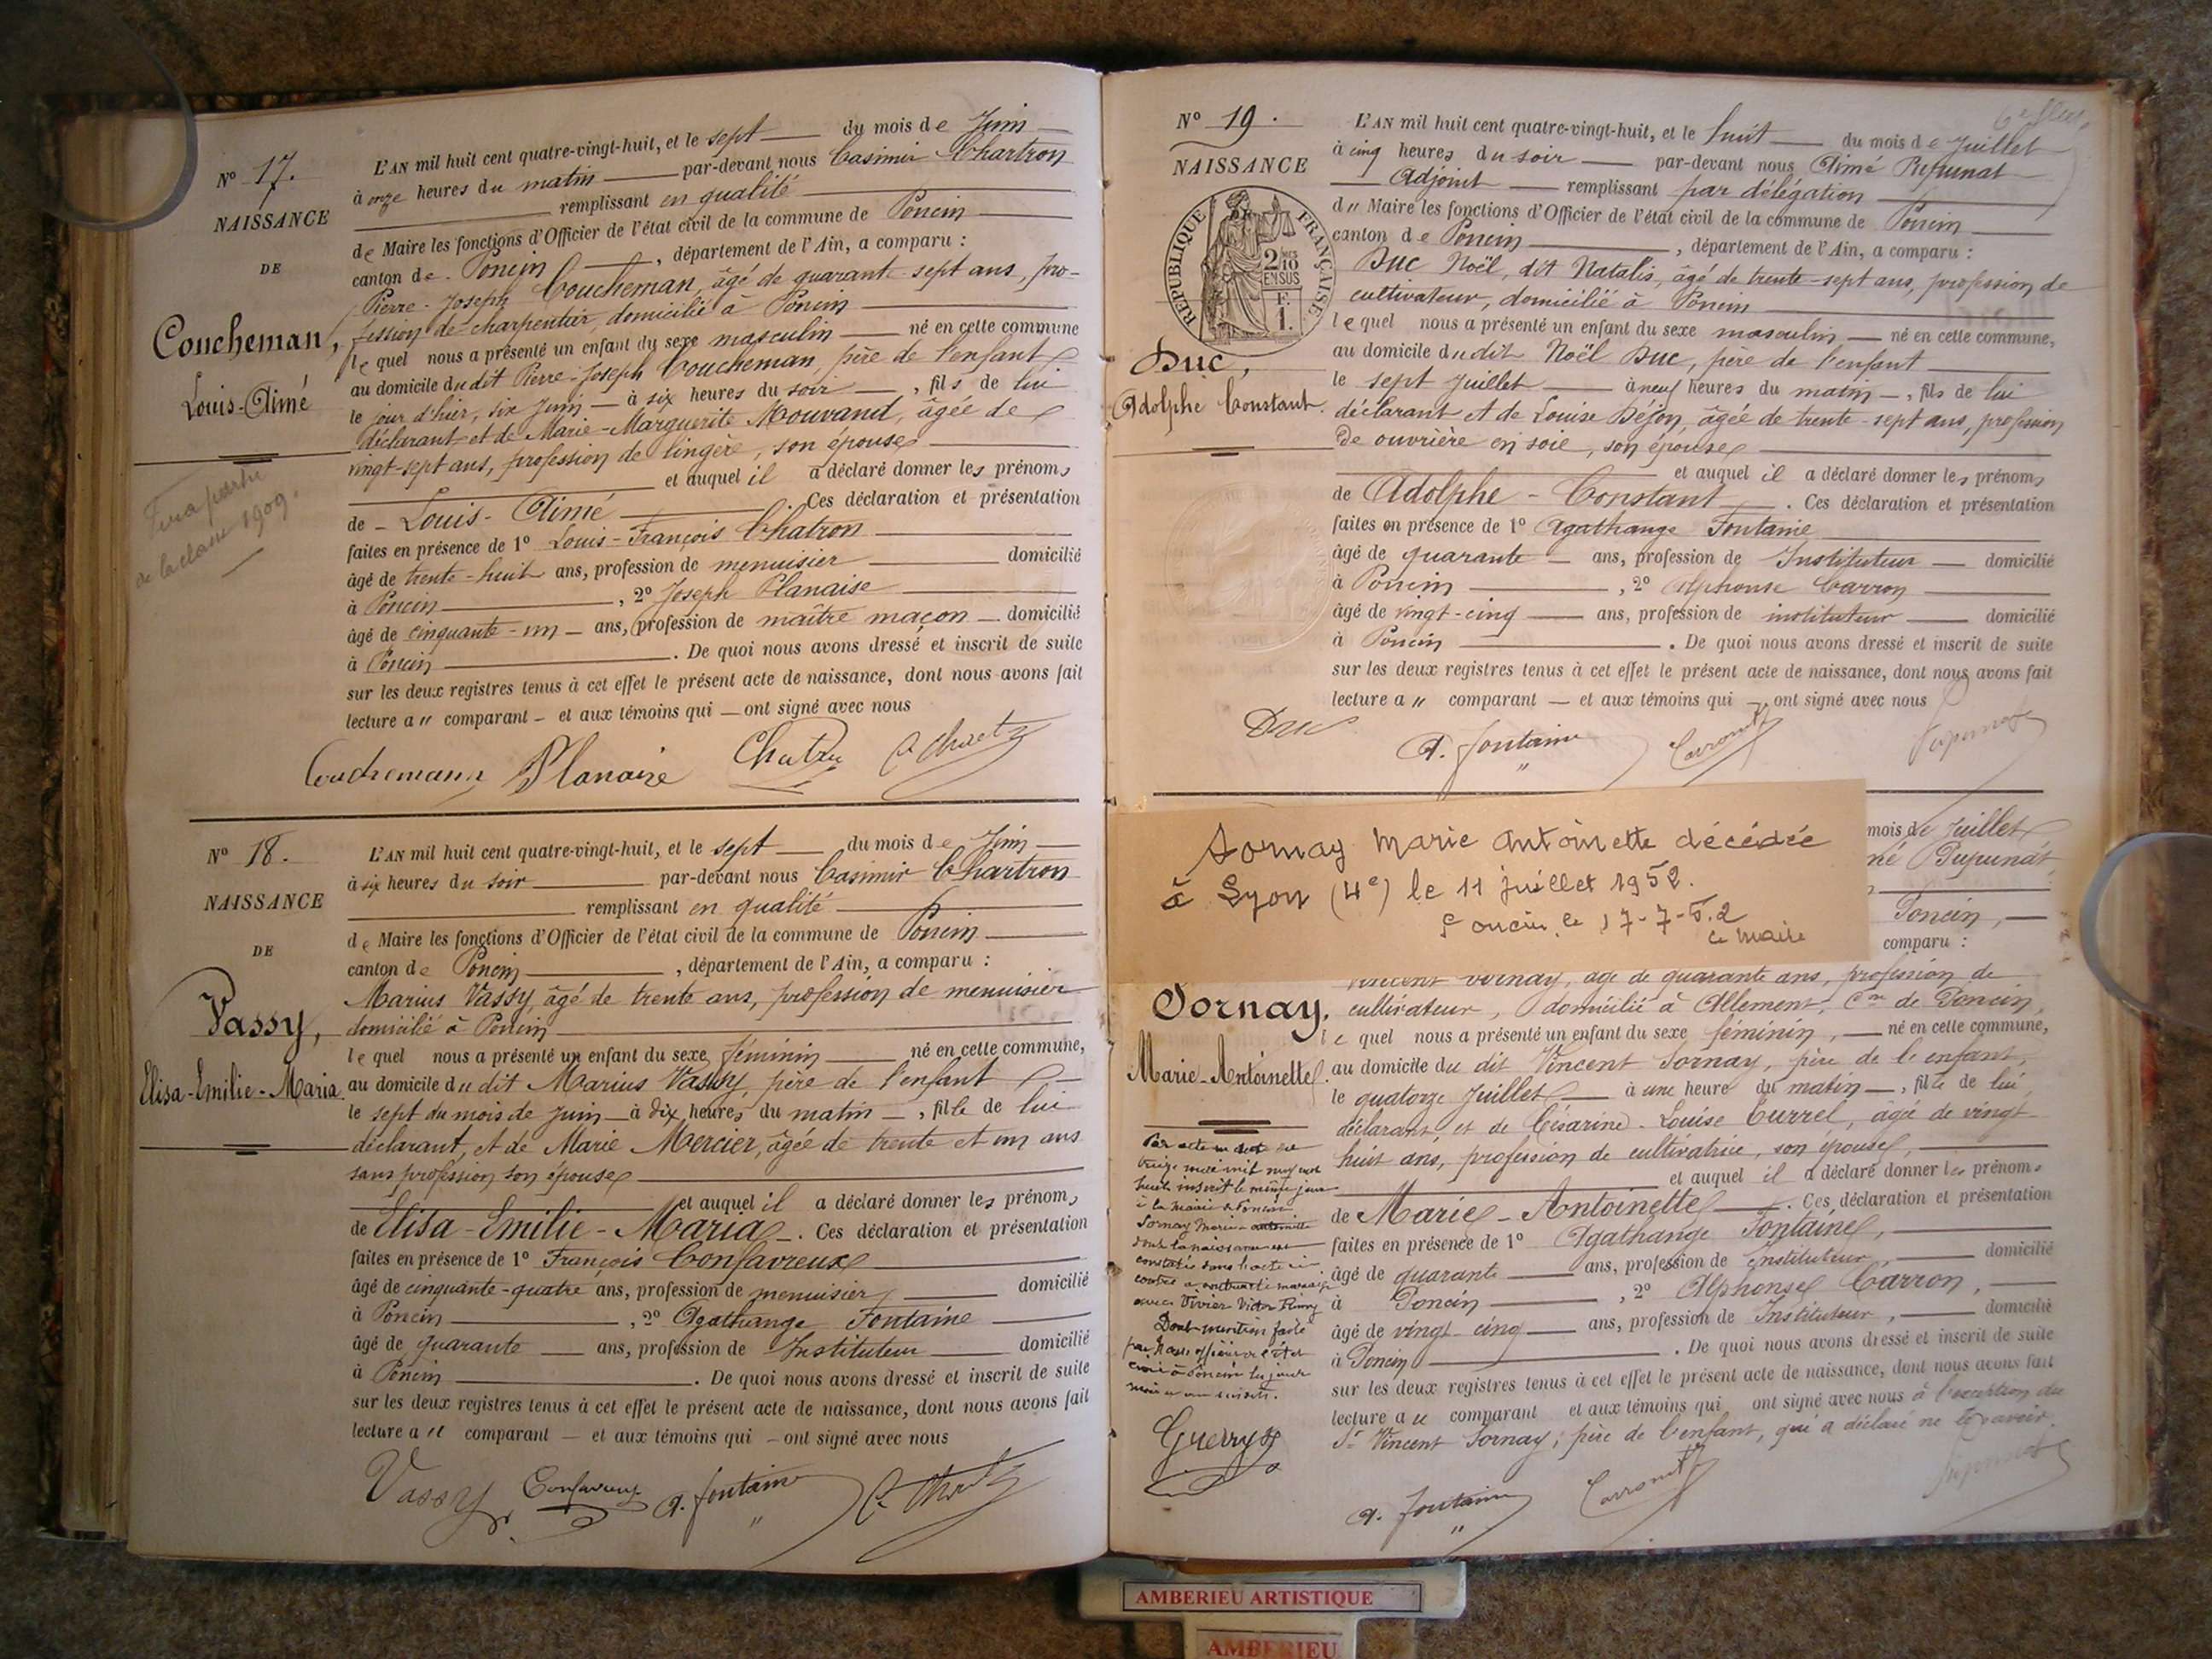 N° 17.
NAISSANCE
DE
Coucheman,
Louis-Aimé
Fera partie
de la classe 1909.
L'AN mil huit cent quatre-vingt-huit, et le sept du mois de Juin
à onze heures du matin par-devant nous Casimir Chartron
remplissant en qualité
de Maire les fonctions d'Officier de l'état civil de la commune de Poncin
canton de Poncin, département de l'Ain, a comparu :
Pierre-Joseph Coucheman, âgé de quarante-sept ans, pro-
fession de charpentier, domicilié à Poncin
le quel nous a présenté un enfant du sexe masculin né en cette commune
au domicile du dit Pierre-Joseph Coucheman, père de l'enfant
le jour d'hier, six Juin à six heures du soir, fils de lui
déclarant et de Marie-Marguerite Mouvand, âgée de
vingt-sept ans, profession de lingère, son épouse
et auquel il a déclaré donner les prénoms
de Louis-Aimé. Ces déclaration et présentation
faites en présence de 1° Louis-François Chatron
âgé de trente-huit ans, profession de menuisier domicilié
à Poncin, 2° Joseph Planaise
âgé de cinquante-un ans, profession de maître maçon domicilié
à Poncin. De quoi nous avons dressé et inscrit de suite
sur les deux registres tenus à cet effet le présent acte de naissance, dont nous avons fait
lecture a u comparant et aux témoins qui ont signé avec nous
Couchemann Planaise
N° 18.
NAISSANCE
DE
Vassy,
Elisa-Emilie-Maria
L'AN mil huit cent quatre-vingt-huit, et le sept du mois de Juin
à six heures du soir par-devant nous Casimir Chartron
remplissant en qualité
de Maire les fonctions d'Officier de l'état civil de la commune de Poncin
canton de Poncin, département de l'Ain, a comparu :
Marius Vassy, âgé de trente ans, profession de menuisier
domicilié à Poncin
le quel nous a présenté un enfant du sexe féminin né en cette commune,
au domicile du dit Marius Vassy, père de l'enfant
le sept du mois de Juin à dix heures du matin, fille de lui
déclarant, et de Marie Mercier, âgée de trente et un ans
sans profession, son épouse
et auquel il a déclaré donner les prénoms
de Elisa-Emilie-Maria. Ces déclaration et présentation
faites en présence de 1° François Confavreux
âgé de cinquante-quatre ans, profession de menuisier domicilié
à Poncin, 2° Agathange Fontaine
âgé de quarante ans, profession de Instituteur domicilié
à Poncin. De quoi nous avons dressé et inscrit de suite
sur les deux registres tenus à cet effet le présent acte de naissance, dont nous avons fait
lecture a u comparant et aux témoins qui ont signé avec nous
Vassy Confavreux A. Fontaine
N° 19.
NAISSANCE
RÉPUBLIQUE FRANÇAISE
2 10
EN SUS
F.
1.
Duc,
Adolphe Constant.
L'AN mil huit cent quatre-vingt-huit, et le huit du mois de Juillet
à cinq heures du soir par-devant nous Aimé Pupunat
Adjoint remplissant par délégation
du Maire les fonctions d'Officier de l'état civil de la commune de Poncin
canton de Poncin, département de l'Ain, a comparu :
Duc Noël, dit Natalis, âgé de trente-sept ans, profession de
cultivateur, domicilié à Poncin
le quel nous a présenté un enfant du sexe masculin né en cette commune,
au domicile du dit Noël Duc, père de l'enfant
le sept Juillet à neuf heures du matin, fils de lui
déclarant et de Louise Déjon, âgée de trente-sept ans, profession
de ouvrière en soie, son épouse
et auquel il a déclaré donner les prénoms
de Adolphe-Constant. Ces déclaration et présentation
faites en présence de 1° Agathange Fontaine
âgé de quarante ans, profession de Instituteur domicilié
à Poncin, 2° Alphonse Carron
âgé de vingt-cinq ans, profession de instituteur domicilié
à Poncin. De quoi nous avons dressé et inscrit de suite
sur les deux registres tenus à cet effet le présent acte de naissance, dont nous avons fait
lecture a u comparant et aux témoins qui ont signé avec nous
Duc A. Fontaine
Sornay Marie Antoinette décédée
à Lyon (4e) le 11 juillet 1952.
Poncin, le 17-7-52
Le Maire
mois de Juillet
mé Pupunat
Poncin,
comparu :
Sornay,
Marie-Antoinette.
Vincent Sornay, âgé de quarante ans, profession de
cultivateur, domicilié à Allement, Cne de Poncin,
le quel nous a présenté un enfant du sexe féminin, né en cette commune,
au domicile du dit Vincent Sornay, père de l'enfant,
le quatorze Juillet à une heure du matin, fille de lui
déclarant, et de Césarine-Louise Currel, âgée de vingt-
huit ans, profession de cultivatrice, son épouse,
et auquel il a déclaré donner les prénoms
de Marie-Antoinette. Ces déclaration et présentation
faites en présence de 1° Agathange Fontaine,
âgé de quarante ans, profession de Instituteur, domicilié
à Poncin, 2° Alphonse Carron,
âgé de vingt-cinq ans, profession de Instituteur, domicilié
à Poncin. De quoi nous avons dressé et inscrit de suite
sur les deux registres tenus à cet effet le présent acte de naissance, dont nous avons fait
lecture a u comparant et aux témoins qui ont signé avec nous à l'exception du
Sr Vincent Sornay, père de l'enfant, qui a déclaré ne le savoir.
Par acte en date du
treize mai mil neuf cent
huit inscrit le même jour
à la mairie de Poncin
Sornay Marie-Antoinette
dont la naissance est
constatée dans l'acte ci-
contre a contracté mariage
avec Vivier Victor
Dont mention faite
par Nous officier de l'état
civil à Poncin les jour
mois et an susdits.
Guerry
A. Fontaine
AMBERIEU ARTISTIQUE
AMBERIEU